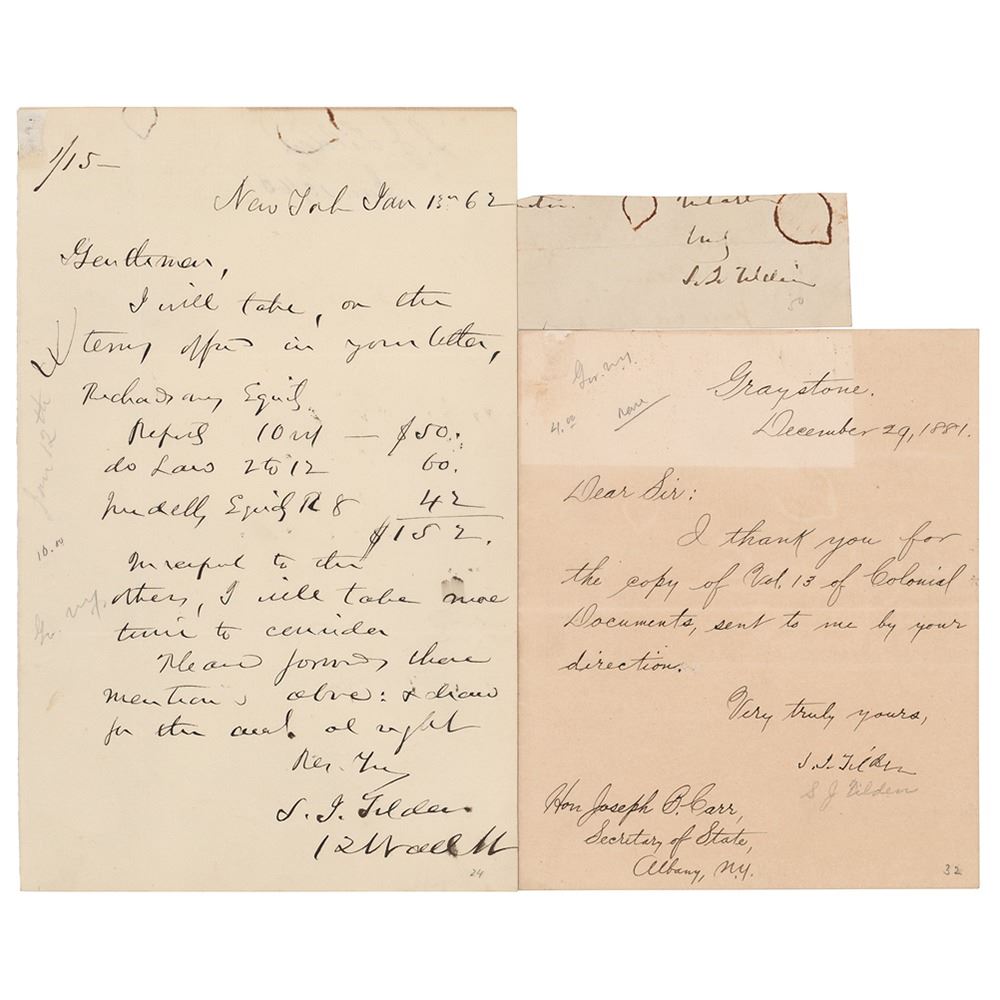 1/15—
New York Jan 13th 62
Gentlemen,
I will take, on the
terms offered in your letter,
Richardsons Equity
Reports 10 vol — $50.
do Law 2 to 12 60.
Equity R 8 42
$152.
In respect to the
others, I will take more
time to consider
Please forward those
mentioned above: & draw
for the amt. at sight
Res. Yrs
S. J. Tilden
12 Wall St
Jan 12th
10.00
Gov. N.Y.
24
S. J. Tilden
50
Gov. N.Y.
4.00
rare
Graystone.
December 29, 1881.
Dear Sir:
I thank you for
the copy of Vol. 13 of Colonial
Documents, sent to me by your
direction.
Very truly yours,
S. J. Tilden
S J Tilden
Hon Joseph B. Carr,
Secretary of State,
Albany, N.Y.
32